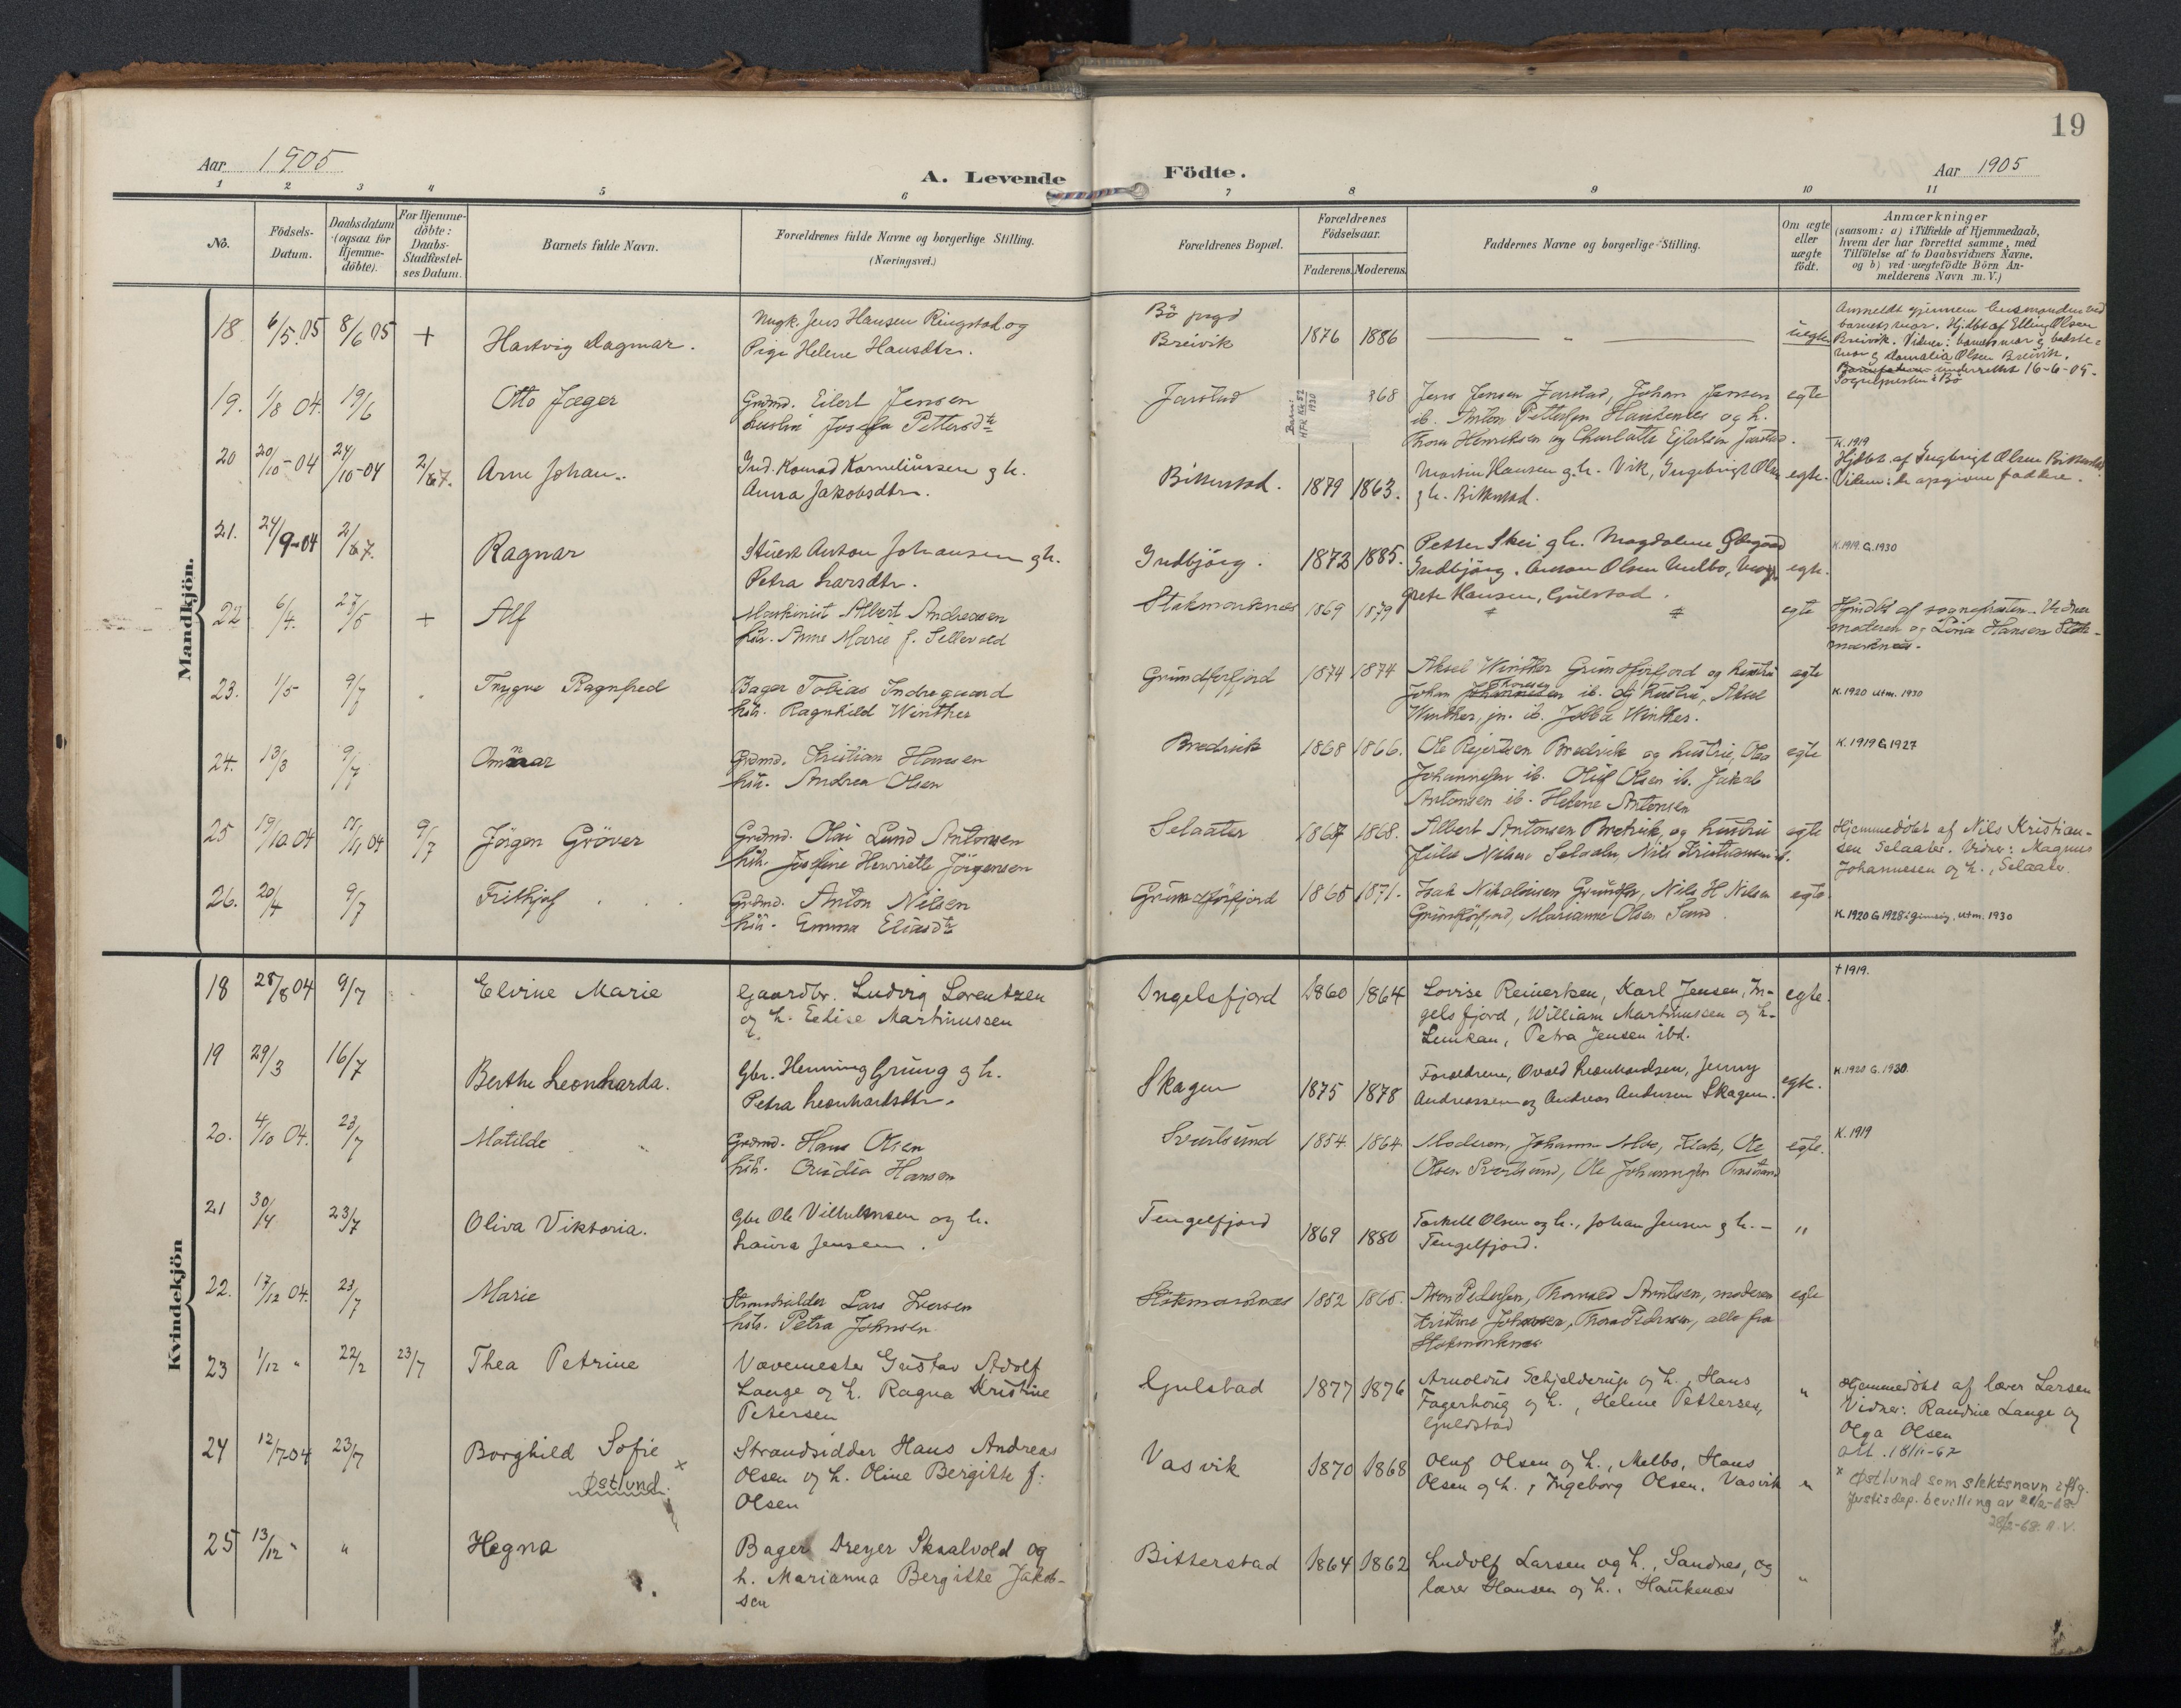 19
Aar 1905
A. Levende Födte.
Aar 1905
1 2 3 4 5 6 7 8 9 10 11
No.
Födsels-Datum.
Daabsdatum (ogsaa for Hjemme-döbte).
For Hjemme-döbte: Daabs-Stadfæstel-ses Datum.
Barnets fulde Navn.
Forældrenes fulde Navne og borgerlige Stilling. (Næringsvei.)
Forældrenes Bopæl.
Forældrenes Födselsaar.
Faderens. Moderens.
Faddernes Navne og borgerlige Stilling.
Om ægte eller uægte födt.
Anmærkninger
(saasom: a) i Tilfælde af Hjemmedaab,
hvem der har forrettet samme, med
Tilföielse af to Daabsvidners Navne,
og b) ved uægtefödte Börn An-
melderens Navn m.V.)
Mandkjön.
18 6/5.05 8/6 05 + Hartvig Dagmar.
Ungk. Jens Hansen Ringstad og
Pige Helene Hansdtr.
Bö
Breivik 1876 1886 — " — uegte
Anmeldt gjennem
barnets mor. Hjdbt af Elling Olsen
Breivik. Vidner: barnets mor og bedste-
mor og Olsen Breivik.
underrettet 16-6-05.
Sognepresten i Bö
19. 1/8 04. 19/6 Otto Jæger
Grdmd. Eilert Jensen
Petters dtr
Jarstad 868
Jens Jensen Jarstad, Johan Jensen
ib. Anton Pettersen Haukenes og h.
Thora Henriksen og Charlotte Jarstad.
egte
20 20/10-04 24/10-04 2/7. Arne Johan.
Ind. Konrad Korneliussen og h.
Anna Jakobsdtr.
Bitterstad. 1879 1863.
Martin Hansen og h. Vik, Ingebrigt Olsen
og h. Bitterstad.
egte.
K. 1919
Hjdbt. af Ingebrigt Olsen Bitterstad
Vidner: de opgivne faddere.
21. 24/9-04 2/7. Ragnar
Anton Johansen og h.
Petra Larsdtr.
Indbjörg. 1873 1885.
Petter Skei og h. Magdalene
Indbjörg. Anton Olsen Melbo,
grete Hansen, Guldstad.
egte.
K. 1919. G. 1930
22 6/4. 27/5 + Alf
Maskinist Albert Andreassen
hstr. Anne Marie f. Sellevold
Stokmarknes 1869 1879 egte
Hjmdbt af sognepresten. Vidner
moderen og Lina Hansen Stok-
marknes.
23. 1/5 9/7 Trygve Ragnfred
Bager Tobias Indregaard
hstr. Ragnhild Winther
Grundförfjord 1874 1874
Aksel Winther Grundförfjord og hustru
Johan Thoresen ib. og hustru, Aksel
Winther, jr. ib. Winther.
egte
K. 1920 utm. 1930
24. 13/3 9/7
Grdmd. Kristian Hansen
hstr. Andrea Olsen
Bredvik 1868 1866.
Ole Reiertsen Bredvik og hustru, Ole
Johannesen ib. Oluf Olsen ib. Jakob
Antonsen ib. Helene Antonsen
egte
K. 1919 G 1927
25 19/10 04 04 9/7 Jörgen Gröver
Grdmd. Olai Lund Antonsen
hstr. Josefine Henriette Jörgensen
Selaater 1867 1868.
Albert Antonsen Bredvik, og hustru
Julie Nilsen Selaater, Nils Kristiansen ib.
egte
Hjemmedöbt af Nils Kristian-
sen Selaater. Vidner: Magnus
Johannesen og h., Selaater.
26. 20/4 9/7 Frithjof
Grdmd. Anton Nilsen
hstr. Emma Eliasdtr
Grundförfjord 1865 1871.
Isak Nikolaisen Grundfør, Nils H Nilsen
Grundförfjord, Marianne Olsen Sand.
egte
K. 1920 G 1928 i Gimsöy, utm. 1930
Kvindekjön
18 28/8 04 9/7 Elvine Marie
Gaardbr. Ludvig Lorentzen
og h. Edise Martinussen
Ingelsfjord 1860 1864
Lovise Reinertsen, Karl Jensen, In-
gelsfjord, William Martinussen og h.
Lunkan, Petra Jensen ibd.
egte.
† 1919.
19 29/3 16/7 Berthe Leonharda.
Gbr. Henning Grung og h.
Petra Leonhardsdtr.
Skagen 1875 1878
Forældrene, Ovald Leonhardsen, Jenny
Andreassen og Andreas Andersen Skagen.
egte.
K. 1920 G. 1930.
20. 4/10 04. 23/7 Matilde
Grdmd. Hans Olsen
hstr. Hansen
Svartsund 1854 1864
Moderen, Johanna Moe, Ole
Olsen Svartsund, Ole Johannesen
egte.
K. 1919
21 30/4 23/7 Oliva Viktoria.
Gbr Ole Vilhelmsen og h.
Laura Jensen.
Tengelfjord 1869 1880
Torkell Olsen og h., Johan Jensen og h. –
Tengelfjord.
"
22. 17/12 04. 23/7 Marie
Strandsidder Lars Iversen
hstr. Petra Johnsen
Stokmarknes 1852 1865.
Aron Pedersen, Thorvald Arntsen, moderen
Kristine Johansen, Thora Pedersen, alle fra
Stokmarknes
egte
23 1/12 " 22/2 23/7 Thea Petrine
Vævemester Gustav Adolf
Lange og h. Ragna Kristine
Petersen
Gulstad 1877 1876
Arnoldus Schjelderup og h., Hans
Fagerhöug og h., Helene Pettersen,
Guldstad
"
Hjemmedöbt af lærer Larsen
Vidner: Randine Lange og
Olga Olsen
24 12/7-04 23/7 Borghild Sofie x
Østlund.
Strandsidder Hans Andreas
Olsen og h. Oline Bergitte f:
Olsen
Vasvik 1870 1868
Oluf Olsen og h., Melbo, Hans
Olsen og h., Ingeborg Olsen, Vasvik
"
Att. 18/11-62
x Østlund som slektsnavn iflg.
Justisdep. bevilling av
28/2-68. A.V.
25 13/12 " " Hegna
Bager Dreyer Skaalvold og
h. Marianna Bergitte Jakob-
sen
Bitterstad 1864 1862
Ludolf Larsen og h., Sandnes, og
lærer Hansen og h., Haukenæs
"